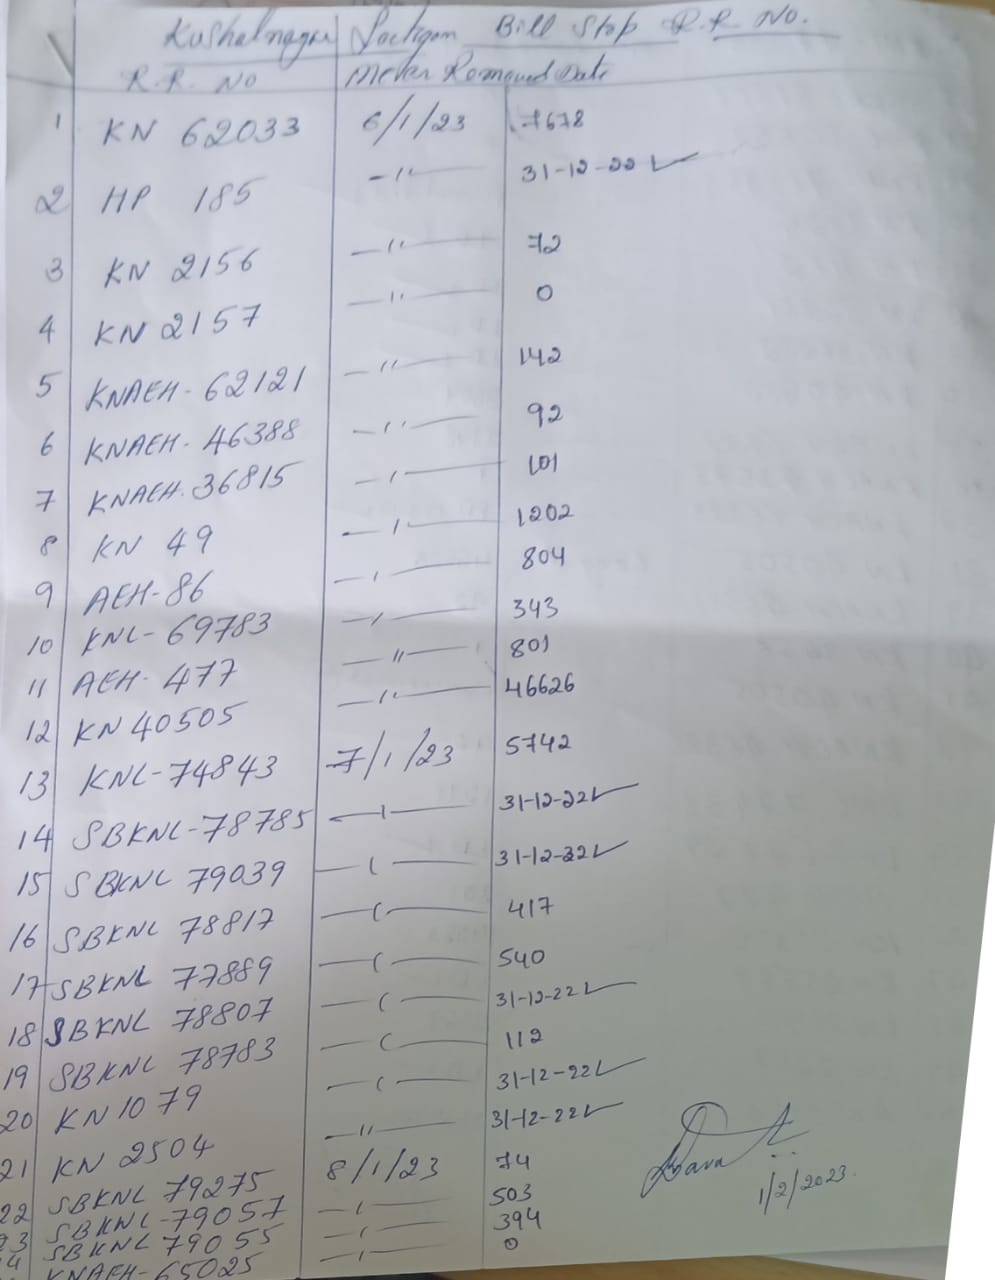 Kushalnagar Section Bill Stop R.R No.
R.R. No Meter Removed Date
1 KN 62033 6/1/23 7678
2 HP 185 -"- 31-12-22 ✓
3 KN 2156 -"- 72
4 KN 2157 -"- 0
5 KNAEH-62121 -"- 142
6 KNAEH-46388 -"- 92
7 KNAEH-36815 -"- 101
8 KN 49 -"- 1202
9 AEH-86 -"- 804
10 KNL-69783 -"- 343
11 AEH-477 -"- 801
12 KN 40505 -"- 46626
13 KNL-74843 7/1/23 5742
14 SBKNL-78785 -"- 31-12-22 ✓
15 SBKNL 79039 -"- 31-12-22 ✓
16 SBKNL 78817 -"- 417
17 SBKNL 77889 -"- 540
18 SBKNL 78807 -"- 31-12-22 ✓
19 SBKNL 78783 -"- 112
20 KN 1079 -"- 31-12-22 ✓
21 KN 2504 -"- 31-12-22 ✓
22 SBKNL 79275 8/1/23 74
23 SBKNL-79057 -"- 503
24 SBKNL 79055 -"- 394
KNAEH-65025 -"- 0
1/2/2023